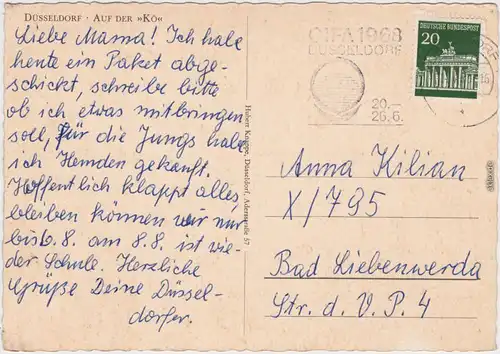 DÜSSELDORF · AUF DER »KÖ«
Liebe Mama! Ich habe
heute ein Paket abge-
schickt, schreibe bitte
ob ich etwas mitbringen
soll, Für die Jungs habe
ich Hemden gekauft.
Hoffentlich klappt alles
bleiben können wir nur
bis 6.8. am 8.8. ist wie-
der Schule. Herzliche
Grüße Deine Düssel-
dorfer.
Hubert Knippe, Düsseldorf, Adersstraße 57
1968
DÜSSELDORF
20.–
26.6.
DEUTSCHE BUNDESPOST
20
Anna Kilian
X/795
Bad Liebenwerda
Str. d. V. P. 4